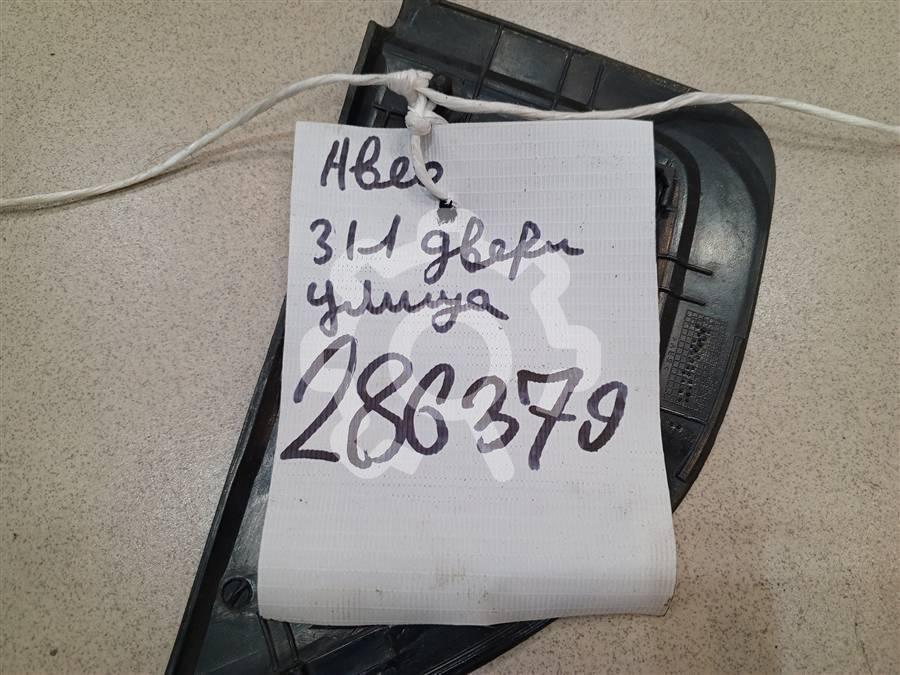 Авео
ЗЛ двери
улица
286379